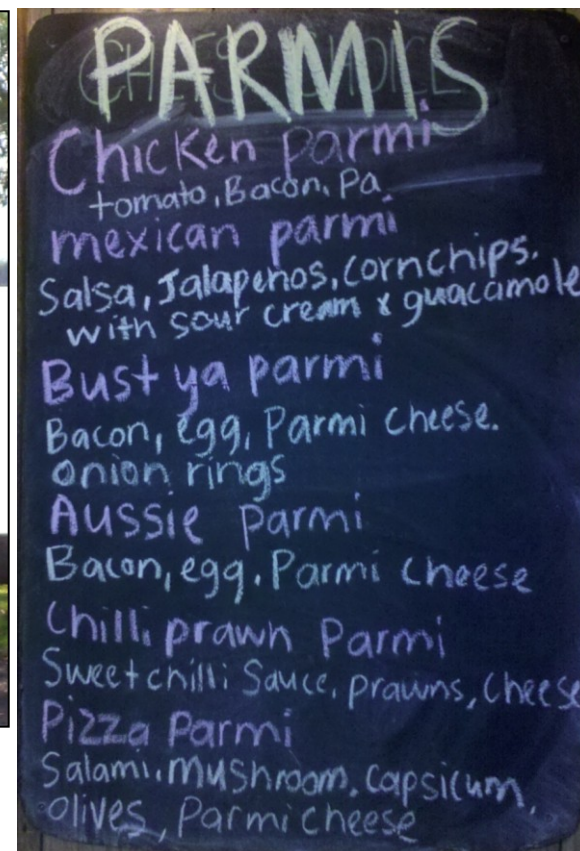 PARMIS
Chicken parmi
tomato, Bacon, Pa
mexican parmi
Salsa, Jalapenos, cornchips.
with sour cream & guacamole
Bust ya parmi
Bacon, egg, Parmi cheese.
onion rings
Aussie parmi
Bacon, egg. Parmi cheese
Chilli prawn Parmi
Sweet chilli Sauce, prawns, cheese
Pizza Parmi
Salami, Mushroom, capsicum,
olives, Parmi cheese